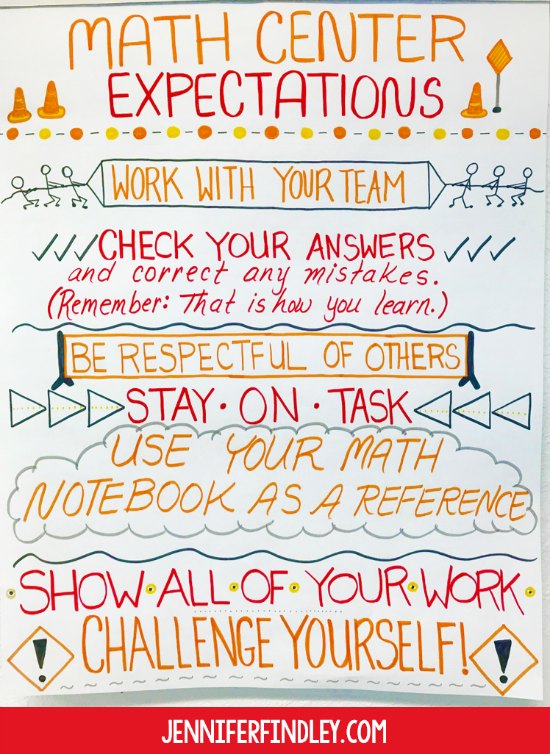 MATH CENTER
EXPECTATIONS
WORK WITH YOUR TEAM
CHECK YOUR ANSWERS
and correct any mistakes.
(Remember: That is how you learn.)
BE RESPECTFUL OF OTHERS
STAY · ON · TASK
USE YOUR MATH
NOTEBOOK AS A REFERENCE
SHOW · ALL · OF · YOUR · WORK ·
CHALLENGE YOURSELF!
JENNIFERFINDLEY.COM